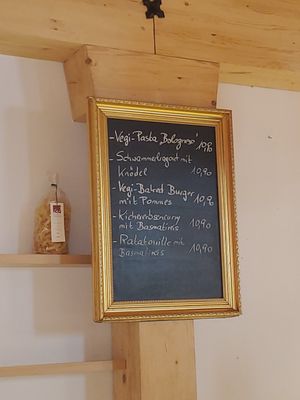 - Vegi-Pasta Bolognese
- Schwammerlragout mit 10,90
Knödel
- Vegi-Batrat Burger
mit Pommes 10,90
- Kichererbsencurry 10,90
mit Basmatireis
- Ratatouille mit 10,90
Basmatireis